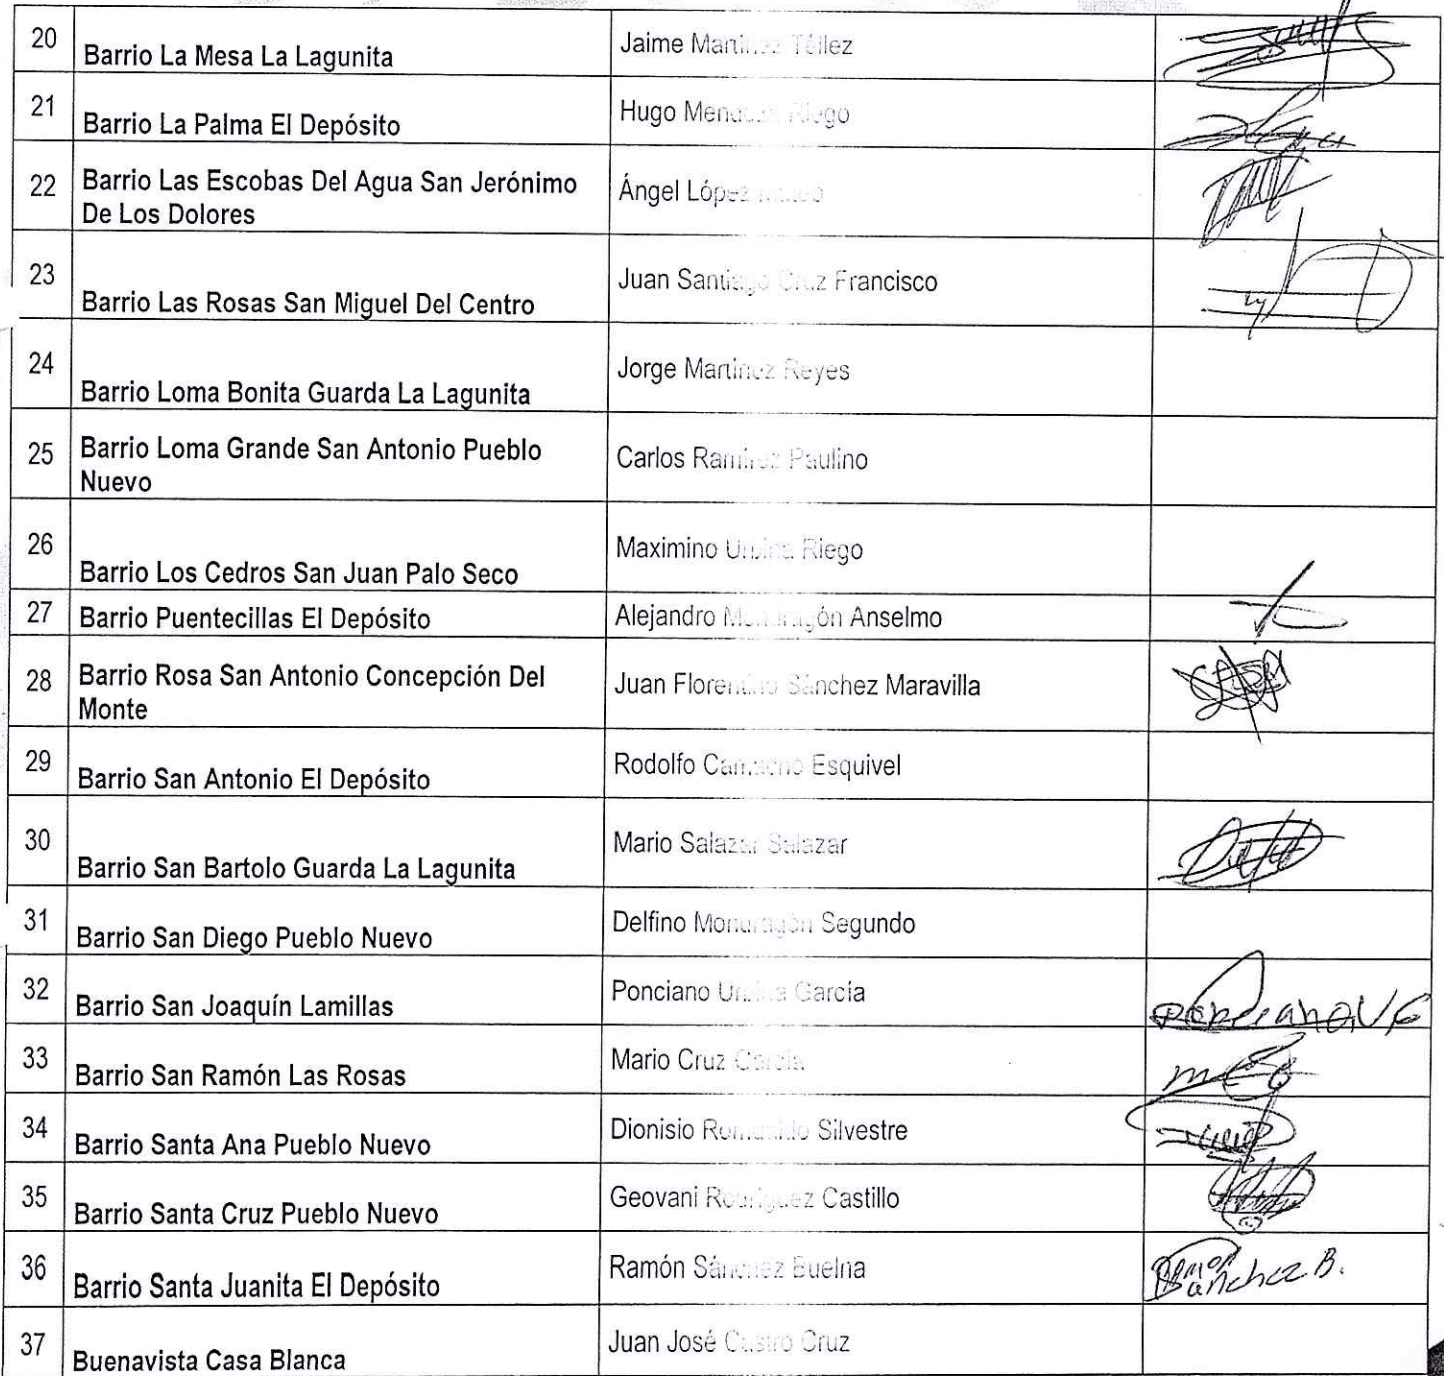 20 Barrio La Mesa La Lagunita Jaime Martínez Téllez
21 Barrio La Palma El Depósito Hugo Riego
22 Barrio Las Escobas Del Agua San Jerónimo De Los Dolores Ángel López
23 Barrio Las Rosas San Miguel Del Centro Juan Santiago Cruz Francisco
24 Barrio Loma Bonita Guarda La Lagunita Jorge Martínez Reyes
25 Barrio Loma Grande San Antonio Pueblo Nuevo Carlos Ramírez Paulino
26 Barrio Los Cedros San Juan Palo Seco Maximino Riego
27 Barrio Puentecillas El Depósito Alejandro Mondragón Anselmo
28 Barrio Rosa San Antonio Concepción Del Monte Juan Florentino Sánchez Maravilla
29 Barrio San Antonio El Depósito Rodolfo Camacho Esquivel
30 Barrio San Bartolo Guarda La Lagunita Mario Salazar Salazar
31 Barrio San Diego Pueblo Nuevo Delfino Mondragón Segundo
32 Barrio San Joaquín Lamillas Ponciano García
33 Barrio San Ramón Las Rosas Mario Cruz García
34 Barrio Santa Ana Pueblo Nuevo Dionisio Romualdo Silvestre
35 Barrio Santa Cruz Pueblo Nuevo Geovani Rodríguez Castillo
36 Barrio Santa Juanita El Depósito Ramón Sánchez Buelna Ramon Sanchez B.
37 Buenavista Casa Blanca Juan José Castro Cruz